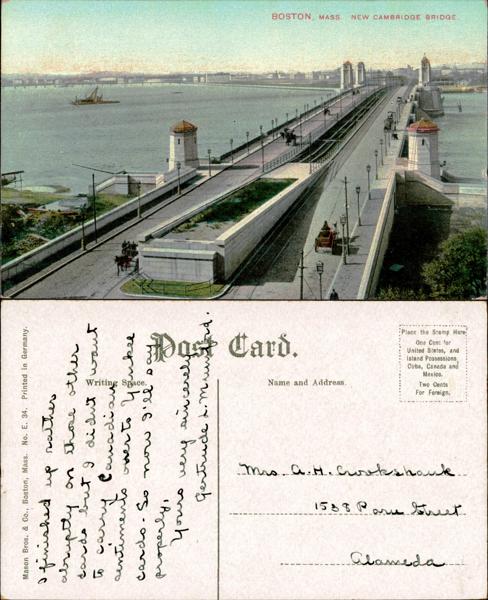 BOSTON, MASS. NEW CAMBRIDGE BRIDGE.
Mason Bros. & Co., Boston, Mass. No. E. 34. Printed in Germany.
Post Card.
Writing Space.
Name and Address.
Place the Stamp Here
One Cent for
United States, and
Island Possessions
Cuba, Canada and
Mexico.
Two Cents
For Foreign.
I finished up rather
abruptly on those other
cards but I didn't want
to carry Canadian
sentiments over to Yankee
cards. So now I'll say
properly,
Yours very sincerely
Gertrude L.
Mrs. A. H. Crookshank
1538 Paru Street
Alameda